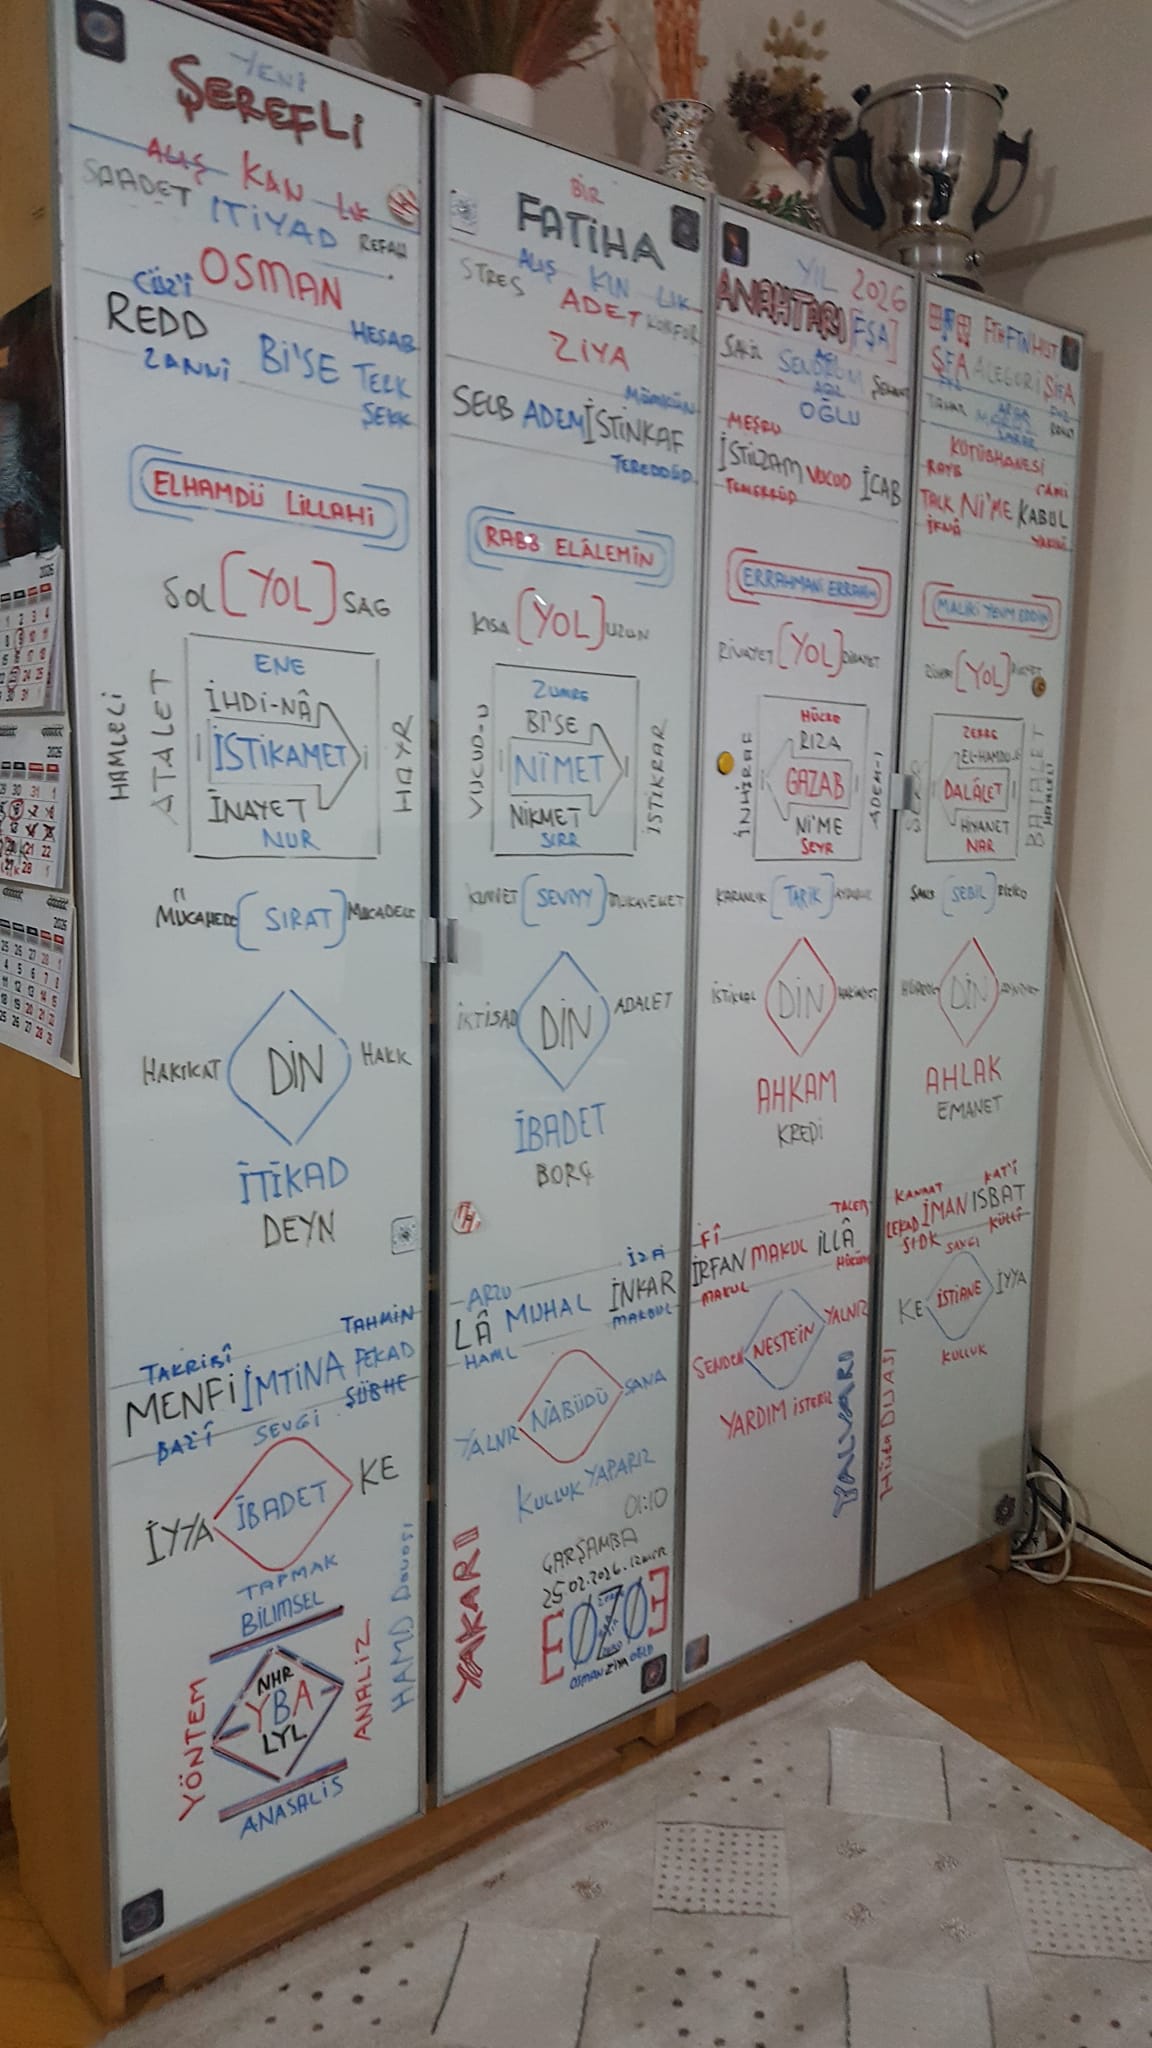 YENİ
ŞEREFLİ
ALIŞ KAN LIK
SAADET İTİYAD REFAH
OSMAN
CÜZ'İ HESAB
REDD Bİ'SE TERK
ZANNİ ŞEKK
ELHAMDÜ LİLLAHİ
SOL [YOL] SAĞ
HAMLELİ
ATALET
ENE
İHDİ-NÂ
İSTİKAMET
İNAYET
NUR
HAYR
MÜCAHEDE [SIRAT] MÜCADELE
HAKİKAT DİN HAKK
İTİKAD
DEYN
TAHMİN
TAKRİBÎ
MENFİ İMTİNA FEKAD
BAZ'Î ŞÜBHE
SEVGİ
İYYA İBADET KE
TAPMAK
BİLİMSEL
YÖNTEM
NHR
YBA
LYL
ANALİZ
ANASALİS
HAMD Duası
BİR
FATİHA
ALIŞ KIN LIK
STRES ADET KONFOR
ZİYA
MÜMKÜN
SELB ADEM İSTİNKAF
TEREDDÜD
RABB ELÂLEMİN
KISA [YOL] UZUN
VUCUD-U
ZUMRE
Bİ'SE
NİMET
NİKMET
SIRR
İSTİKRAR
KUVVET [SEVİYY] MUKAVEMET
İKTİSAD DİN ADALET
İBADET
BORÇ
ARZU
LÂ MUHAL İNKAR
HAML MAKBUL
YALNIZ NÂBÜDÜ SANA
KULLUK YAPARIZ
01:10
ÇARŞAMBA
25.02.2026.İZMİR
YAKARI
EOZOE
OSMAN ZİYA OĞLU
YIL 2026
ANAHTARI [FŞA]
OĞLU
MEŞRU
İSTİLZAM VUCUD İCAB
TEMERRÜD
ERRAHMANİ ERRAHİM
RİVAYET [YOL] DİRAYET
İNHİRAF
HÜCRE
RIZA
GAZAB
Nİ'ME
SEYR
ADEM-İ
KARANLIK [TARİK] AYDINLIK
İSTİKLAL DİN HAKİMİYET
AHKAM
KREDİ
FÎ TALEB
İRFAN MAKUL İLLÂ
MAKUL HÜKÜM
SENDEN NESTEİN YALNIZ
YARDIM İSTERİZ
YALVARI
FTH FTN HDT
ŞFA ALEGORİ ŞİFA
KÜTÜBHANESİ
RAYB CAMİ
TALK Nİ'ME KABUL
İKNÂ YAKİNÎ
MALİKİ YEVM EDDİN
[YOL]
ZERRE
EL-HAMDÜ
DALÂLET
HİYANET
NAR
BATALET
HAMLELİ
ŞANS [SEBİL] RİZİKO
DİN
AHLAK
EMANET
KANAAT KAT'İ
LEKAD İMAN İSBAT
SIDK KÜLLÎ
SAYGI
KE İSTİANE İYYA
KULLUK
Hüda DUASI